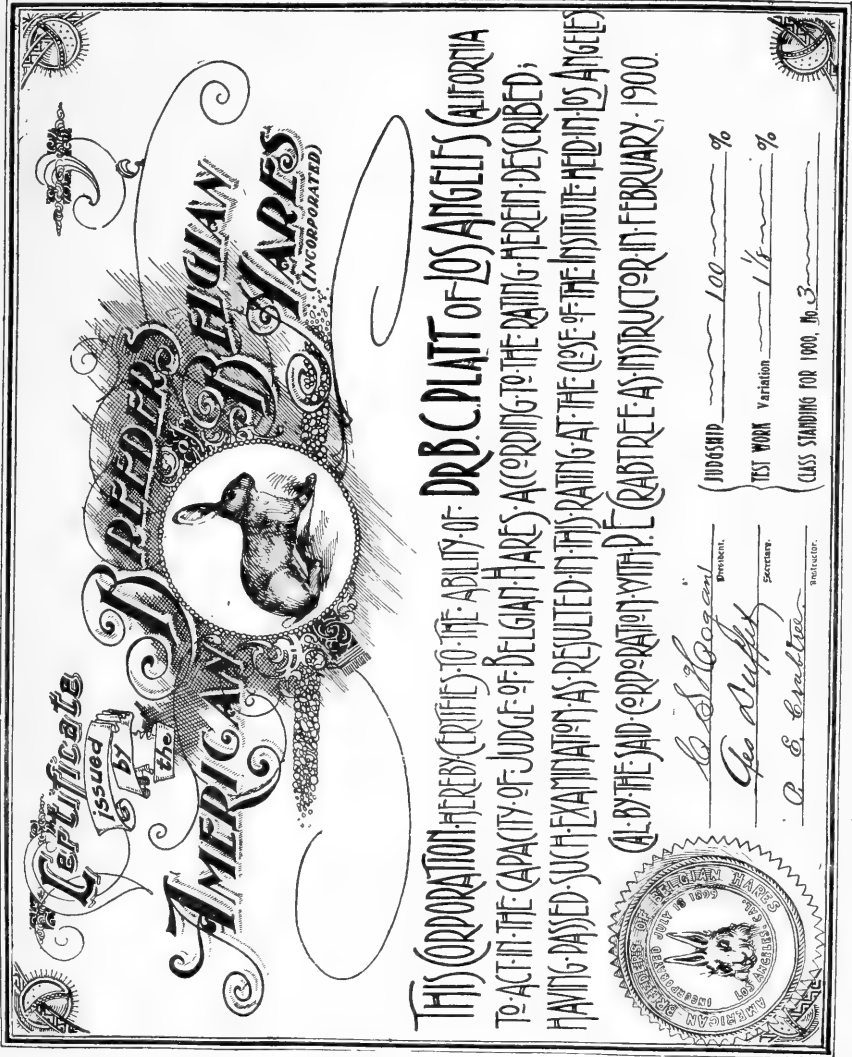 Certificate
issued
by
the
AMERICAN BREEDERS BELGIAN HARES
(INCORPORATED)
THIS CORPORATION·HEREBY·CERTIFIES·TO·THE·ABILITY·OF· DR B. C. PLATT OF LOS ANGELES CALIFORNIA
TO·ACT·IN·THE·CAPACITY·OF·JUDGE·OF·BELGIAN·HARES·ACCORDING·TO·THE·RATING·HEREIN·DESCRIBED;
HAVING·PASSED·SUCH·EXAMINATION·AS·RESULTED·IN·THIS·RATING·AT·THE·CLOSE·OF·THE·INSTITUTE·HELD·IN·LOS ANGELES
CAL·BY·THE·SAID·CORPORATION·WITH·P. E. CRABTREE·AS·INSTRUCTOR·IN·FEBRUARY, 1900.
President.
Geo
Secretary.
P. E. Crabtree
Instructor.
JUDGSHIP 100 %
TEST WORK Variation 1 1/8 %
CLASS STANDING FOR 1900, No. 3
AMERICAN BREEDERS OF BELGIAN HARES
INCORPORATED
LOS ANGELES, CAL.